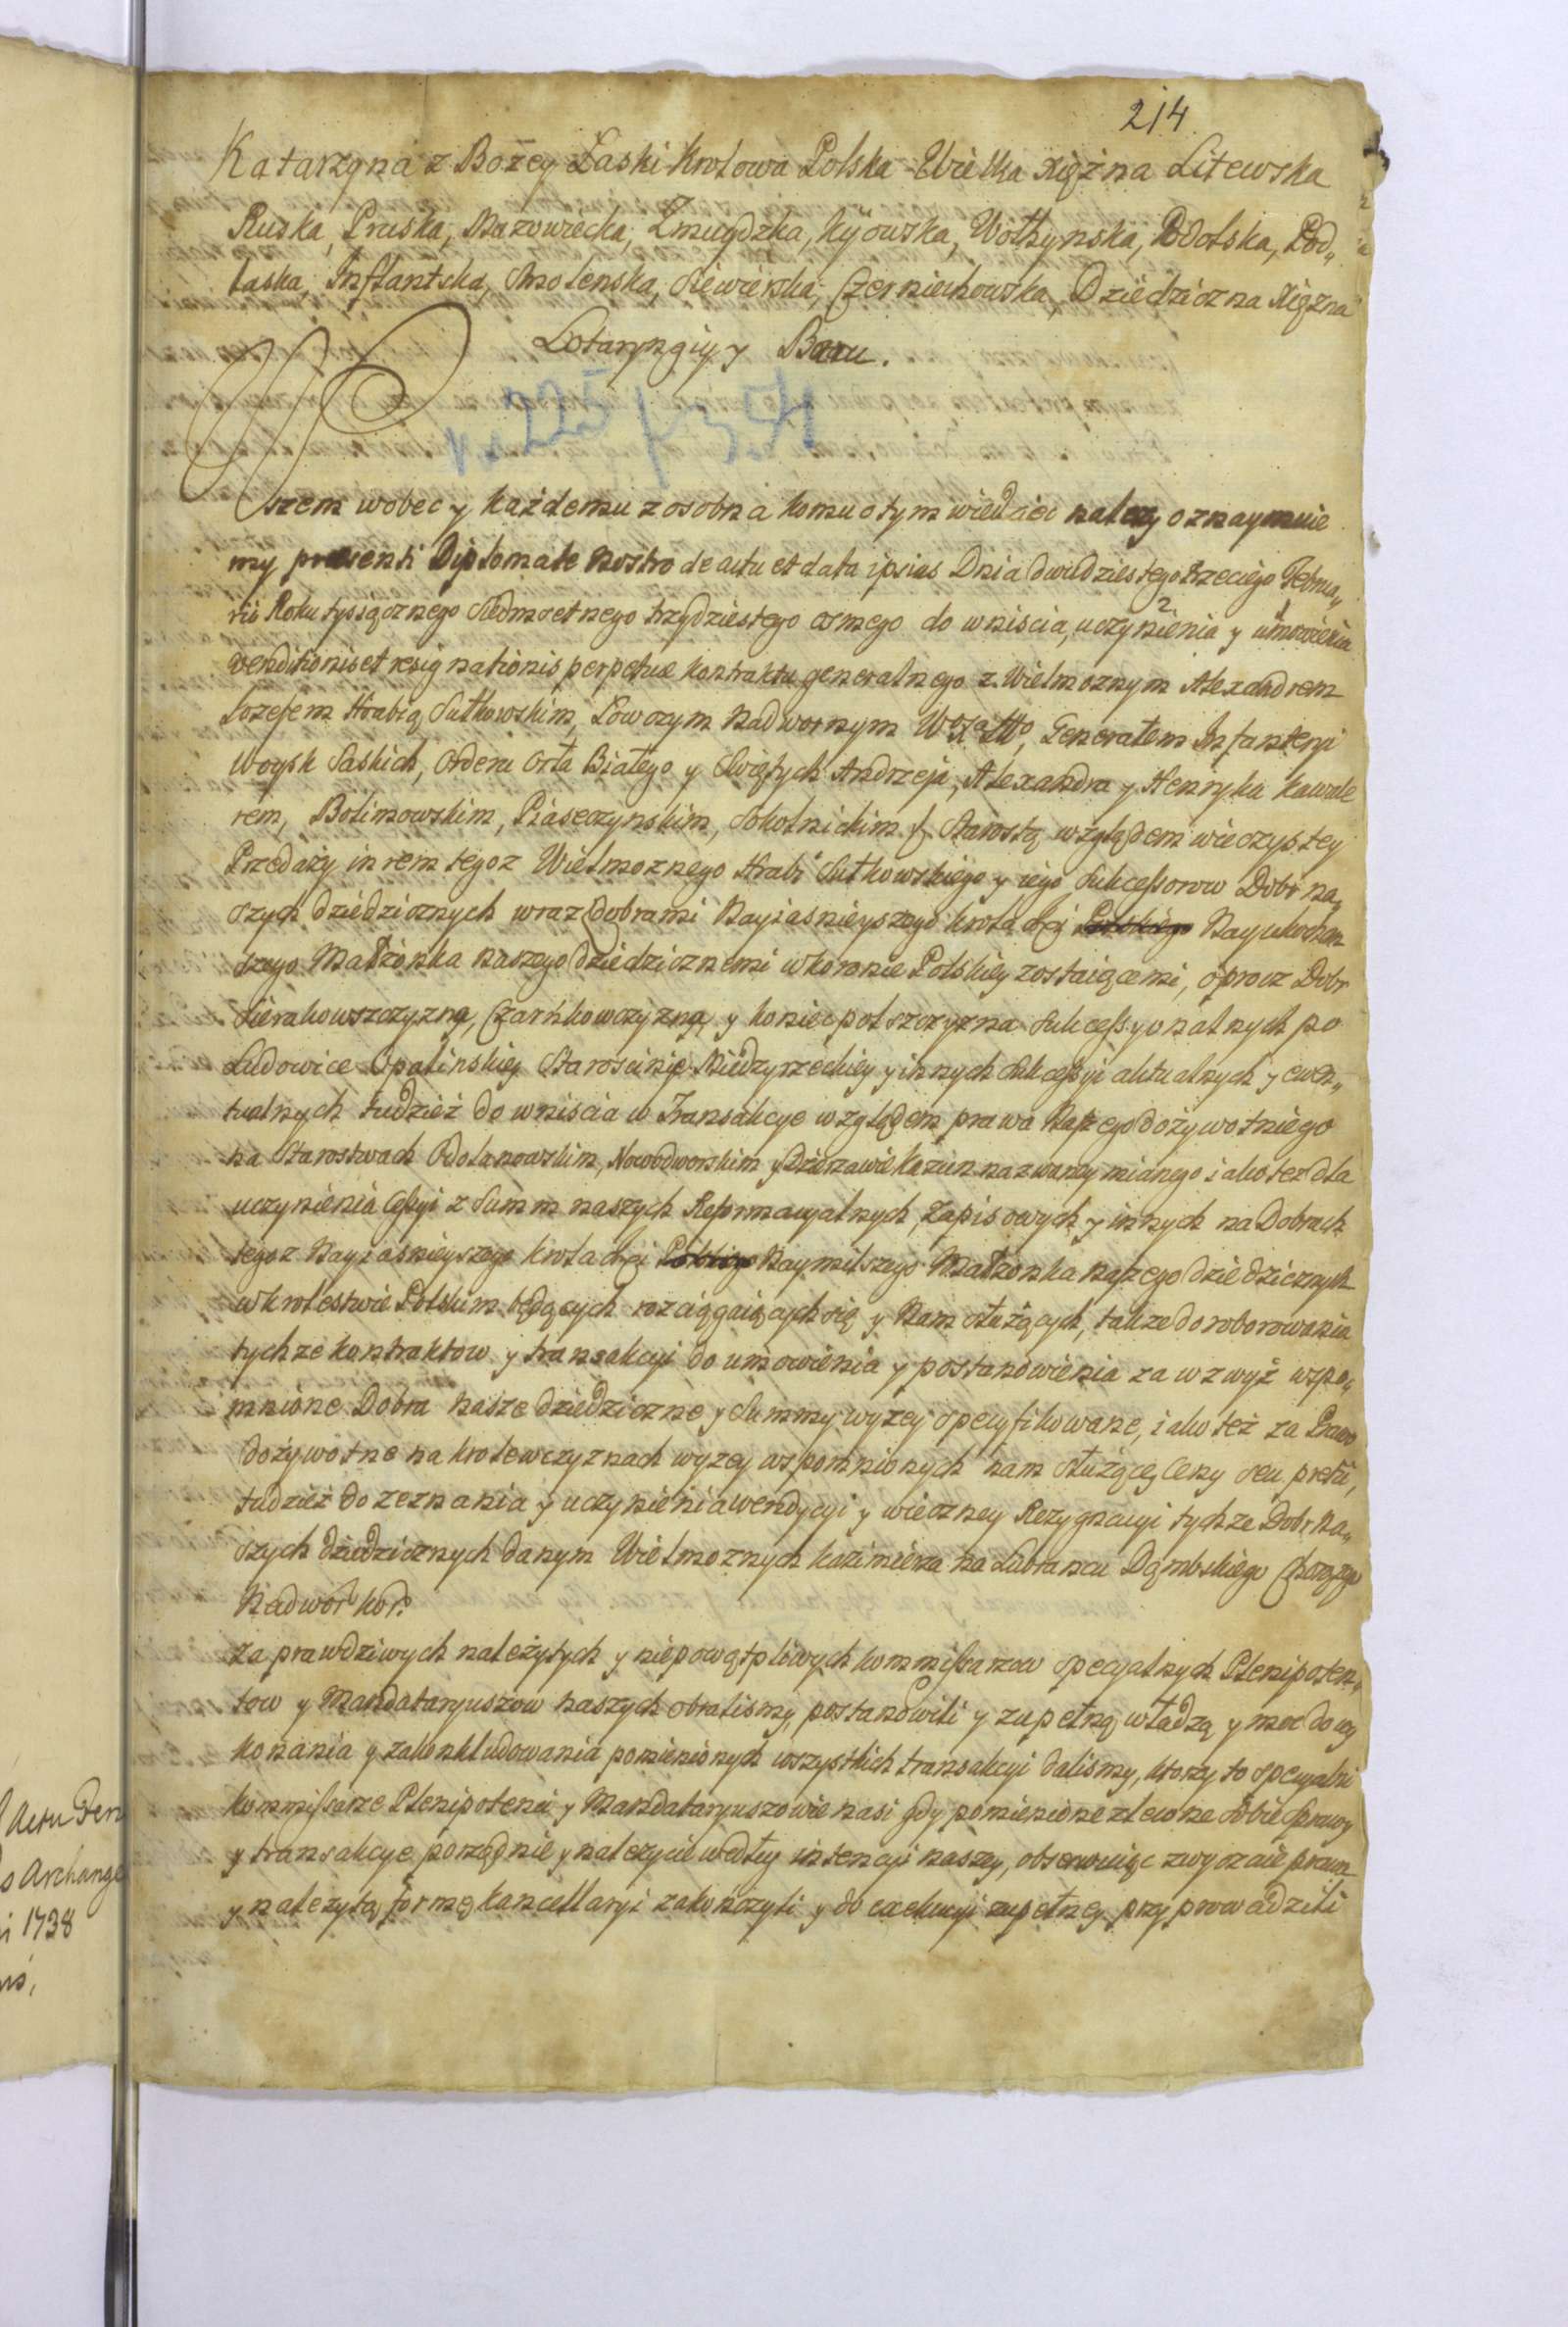 214
Katarzyna z Bożey Łaski Krolowa Polska Wielka Xiężna Litewska
Ruska, Pruska, Mazowiecka, Zmuydzka, Kijowska, Wołhynska, Podolska, Pod„
laska, Inflantska, Smolenska, Siewierska, Czerniechowska, Dziedziczna Xiężna
Lotaryngiy y Baru.
No 225
Wszem wobec y każdemu z osobna komu o tym wiedzieć należy oznaymuie
my praesenti Diplomate Nostro de actu et data ipsius Dnia dwudziestego trzeciego Februa„
rii Roku tysiącznego siedmsetnego trzydziestego osmego do wniscia, uczynienia y umowienia
venditionis et resignationis perpetuae kontraktu generalnego z Wielmoznym Alexandrem
Jozefem Hrabią Sułkowskim, Łowczym Nadwornym WXLitto, Generałem Infanteryi
Woysk Saskich, Orderu Orła Białego y Swiętych Andrzeja, Alexandra y Henryka kawale
rem, Bolimowskim, Piaseczynskim, Sokolnickim Starostą względem wieczystey
Przedaży in rem tegoz Wielmoznego Hrabi Sułkowskiego y iego Sukcessorow Dobr na„
szych dziedzicznych wraz Dobrami Nayiasnieyszego Krola Jmci Polskiego Nayukochań
szego Małżonka naszego dziedzicznemi w koronie Polskiey zostaiącemi, oprocz Dobr
Sierakowszczyzną, Czarńkowczyzną, y Koniecpolszczyzna Sukcessyonalnych po
Ludowice Opalinskiey Starosciniey Miedzyrzeckiey y innych Sukcessyi aktualnych y ewen„
tualnych tudzież do wniscia w Transakcye względem prawa Naszego dożywotniego
na Starostwach Odolanowskim, Nowodworskim y Dzierzawie Kazun nazwaney mianego iako tez dla
uczynienia Cessyi z Summ naszych Reformacyalnych, Zapisowych y innych na Dobrach
tegoz Nayiasnieyszego Krola Jmci Polskiego Naymilszego Małżonka naszego dziedzicznych
w krolestwie Polskim będących rozciągaiących się y Nam służących, takze do roborowania
tychze kontraktow y transakcyi do umowienia y postanowienia za wzwyż wspo„
mnione Dobra nasze dziedziczne y Summy wyzey specyfikowane, iako też za Prawo
dożywotne na krolewczyznach wyzey wspomnionych nam służące Ceny seu pretii,
tudzież do zeznania y uczynienia wendycyi y wieczney Rezygnacyi tychze Dobr Na„
szych dziedzicznych danym Wielmoznych Kazimierza na Lubrancu Dąmbskiego Chorążego
Nadwor Kor.
za prawdziwych należytych y niepowątpliwych kommissarzow specyalnych Plenipoten„
tow y Mandataryuszow naszych obralismy, postanowili y zupełną władzą y moc do wy
konania y zakonkludowania pomienionych wszystkich transakcyi dalismy, ktorzy to specyalni
kommissarze Plenipotenci y Mandataryuszowie nasi gdy pomienione zlecone Sobie Sprawy
y transakcye porządnie y nalezycie według intencyi naszey, obserwuiąc zwyczaie prawa
y należytą formę kancellaryi zakończyli y do exekucyi zupełney przyprowadzili
i 1738